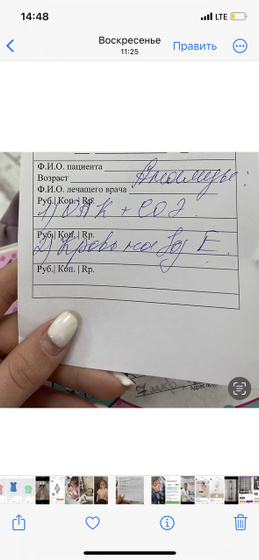 14:48
LTE
Воскресенье
11:25
Править
Ф.И.О. пациента
Возраст Анализы:
Ф.И.О. лечащего врача
Руб.| Коп. | Rp.
1) ОАК + СОЭ
Руб.| Коп. | Rp.
2) Кровь на Jg E.
Руб.| Коп. | Rp.